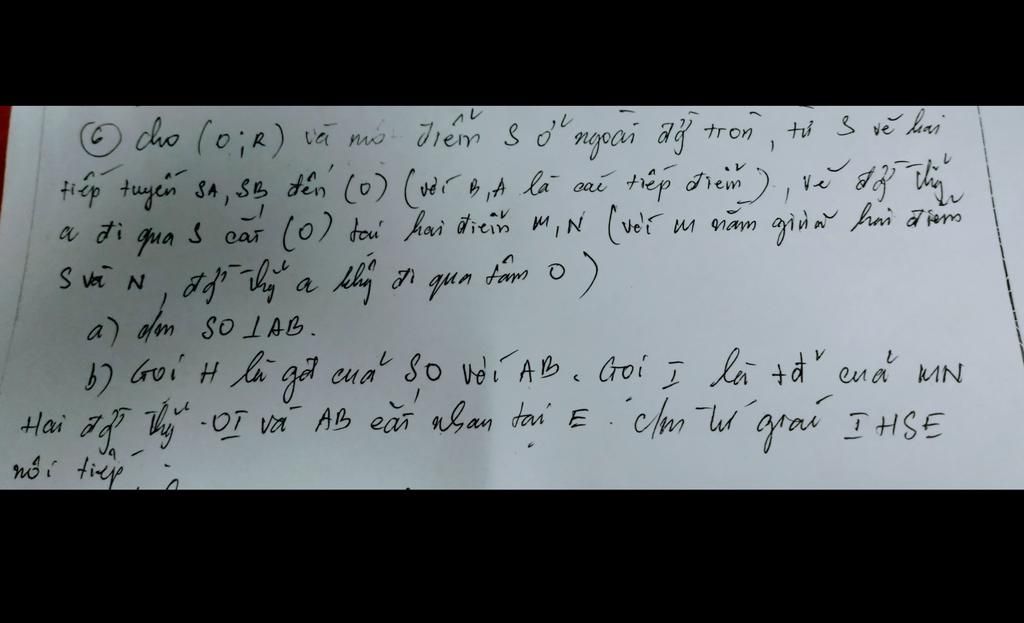 ⑥ cho (O;R) và mô điểm S ở ngoài đg̃ tròn, từ S vẽ hai
tiếp tuyến SA, SB đến (O) (với B,A là các tiếp điểm), vẽ đg̃ thg̉
a đi qua S cắt (O) tại hai điểm M,N (với M nằm giữa hai điểm
S và N, đg̃ thg̉ a khg̃ đi qua tâm O)
a) c/m SO ⊥ AB.
b) Gọi H là gđ cuả SO với AB. Gọi I là tđ cuả MN
Hai đg̃ thg̉ OI và AB cắt nhau tại E. c/m tứ giác IHSE
nội tiếp